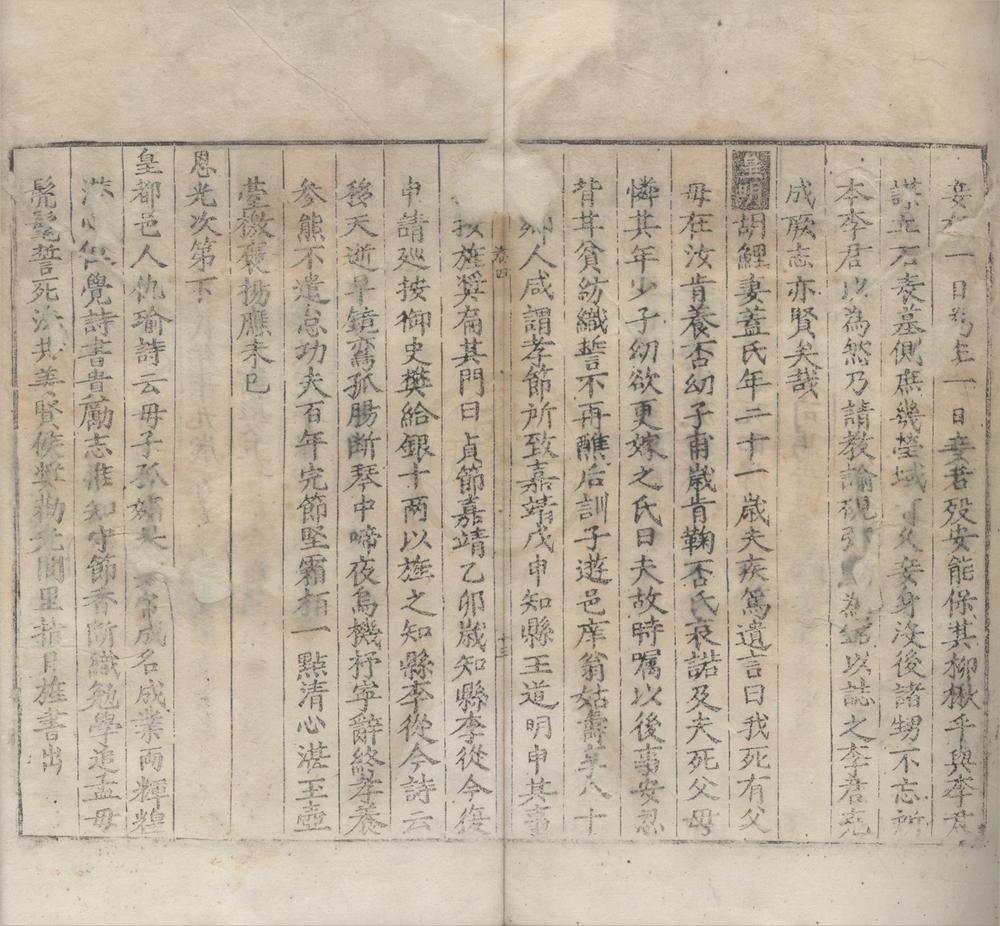 一日一日妾若歿安能保其柳楸乎與李君
謀立石表墓側庶幾塋域可久妾身沒後諸甥不忘所
本李君以為然乃請教諭硯為銘以誌之李君克
成厥志亦賢矣哉
皇明胡鯉妻蓋氏年二十一歲夫疾篤遺言曰我死有父
母在汝肯養否幼子甫歲肯鞠否氏哀諾及夫死父母
憐其年少子幼欲更嫁之氏曰夫故時囑以後事安忍
背茸貧紡織誓不再醮后訓子遊邑庠翁姑壽享八十
鄉人咸謂孝節所致嘉靖戊申知縣王道明申其事
卷四
十三
按旌奬扁其門曰貞節嘉靖乙卯歲知縣李從今復
申請廵按御史樊給銀十两以旌之知縣李從今詩云
移天逝早鏡鸞孤腸斷琴中啼夜烏機杼寧辭終孝養
参熊不遣怠功夫百年完節堅霜栢一點清心湛玉壺
薹檄褒揚應未已
恩光次第下
皇都邑人仇瑜詩云母子孤孀成名成業两輝煌
心覺詩書貴勵志惟知守節香断織勉學追孟母
髡髦誓死汝共姜賢侯奬勸光閭里指日旌書出